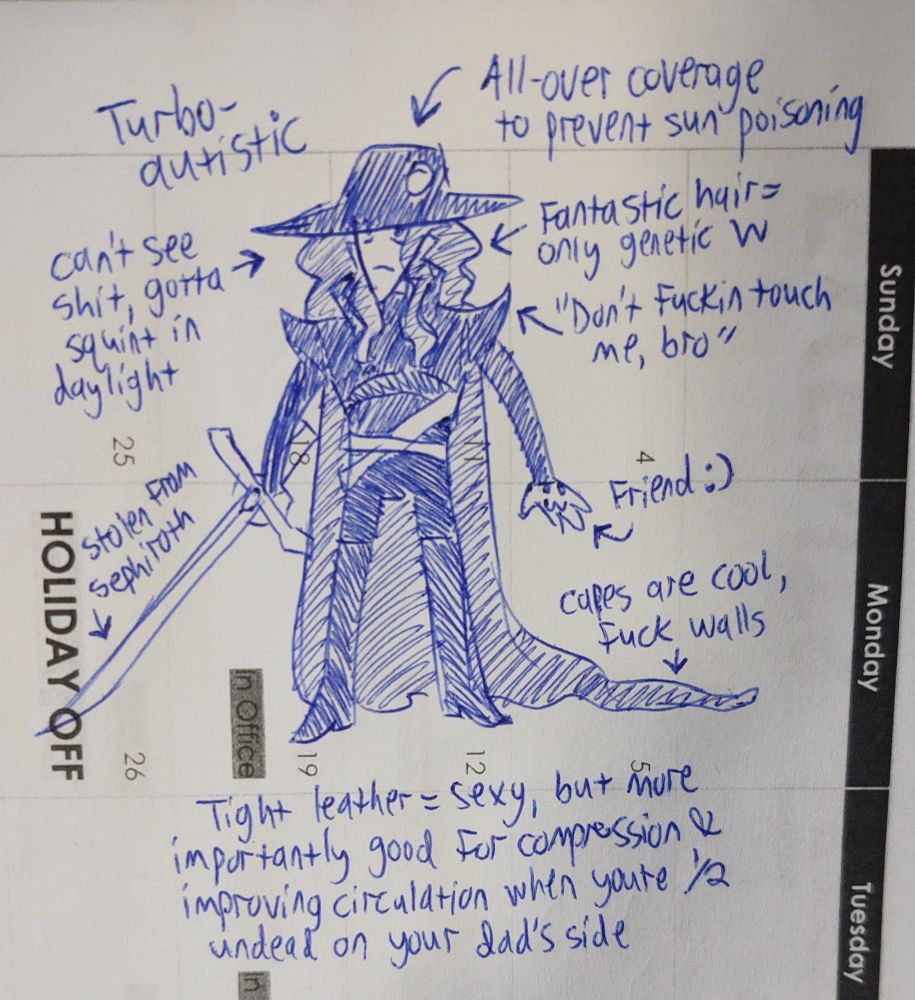 Turbo-
autistic
All-over coverage
to prevent sun poisoning
can't see
shit, gotta
squint in
daylight
Fantastic hair=
only genetic W
"Don't Fuckin touch
me, bro"
Stolen From
Sephiroth
Friend :)
capes are cool,
Fuck walls
Tight leather = sexy, but more
importantly good For compression &
improving circulation when youre 1/2
undead on your dad's side
Sunday
Monday
Tuesday
25
18
11
4
HOLIDAY OFF
In Office
26
19
12
5
In